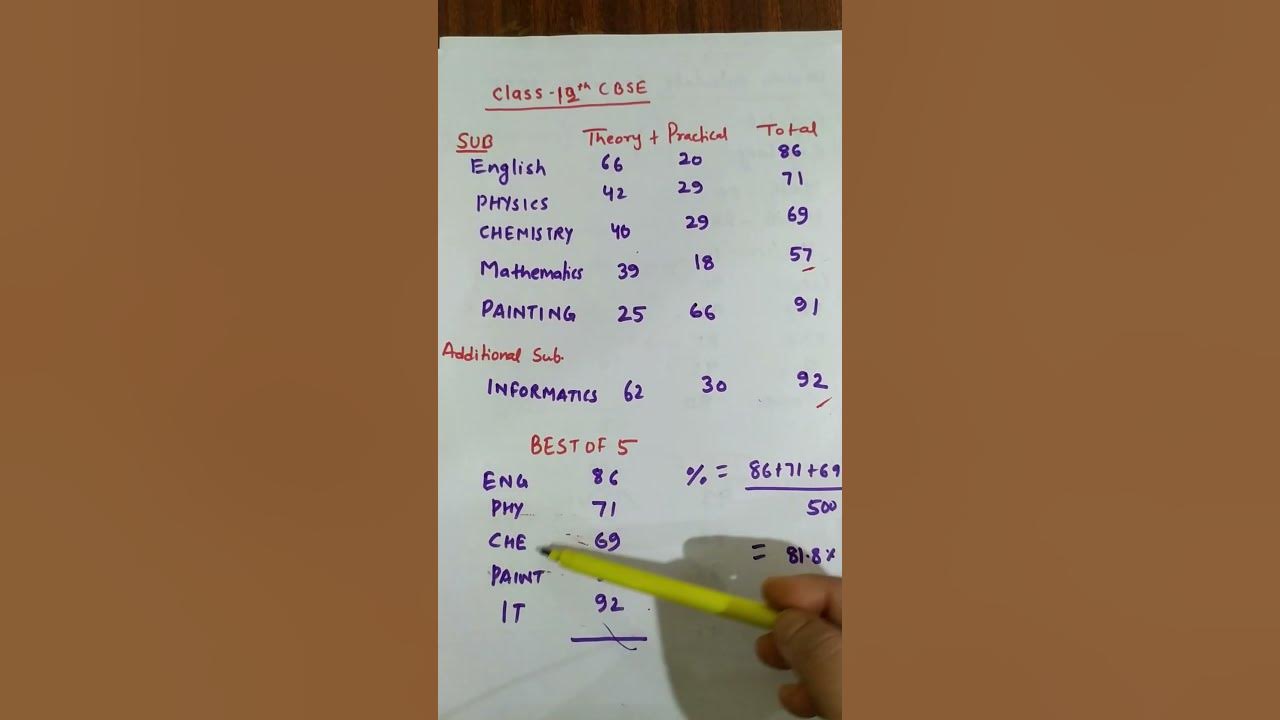 Class-12th CBSE
SUB Theory + Practical Total
English 66 20 86
PHYSICS 42 29 71
CHEMISTRY 40 29 69
Mathematics 39 18 57
PAINTING 25 66 91
Additional Sub.
INFORMATICS 62 30 92
BEST OF 5
ENG 86 % = 86+71+69
PHY 71 500
CHE 69 = 81.8%
PAINT
IT 92